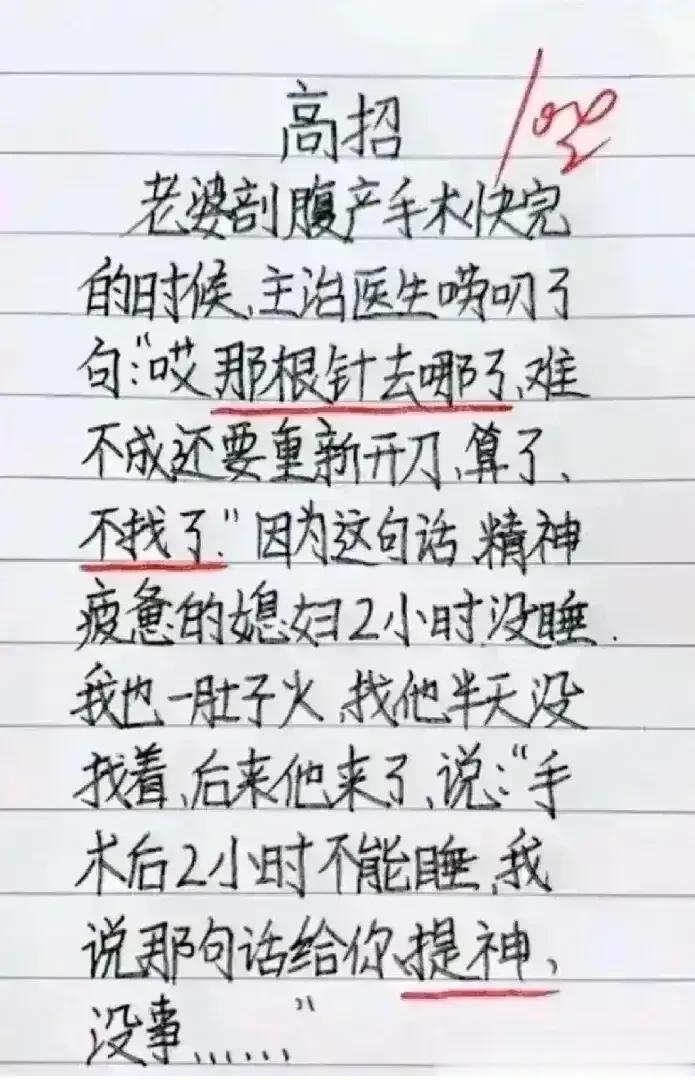 高招
老婆剖腹产手术快完
的时候、主治医生唠叨了
句:“哎那根针去哪了、难
不成还要重新开刀、算了、
不找了.”因为这句话、精神
疲惫的媳妇2小时没睡.
我也一肚子火、找他半天没
找着、后来他来了、说:“手
术后2小时不能睡、我
说那句话给你、提神、
没事......”